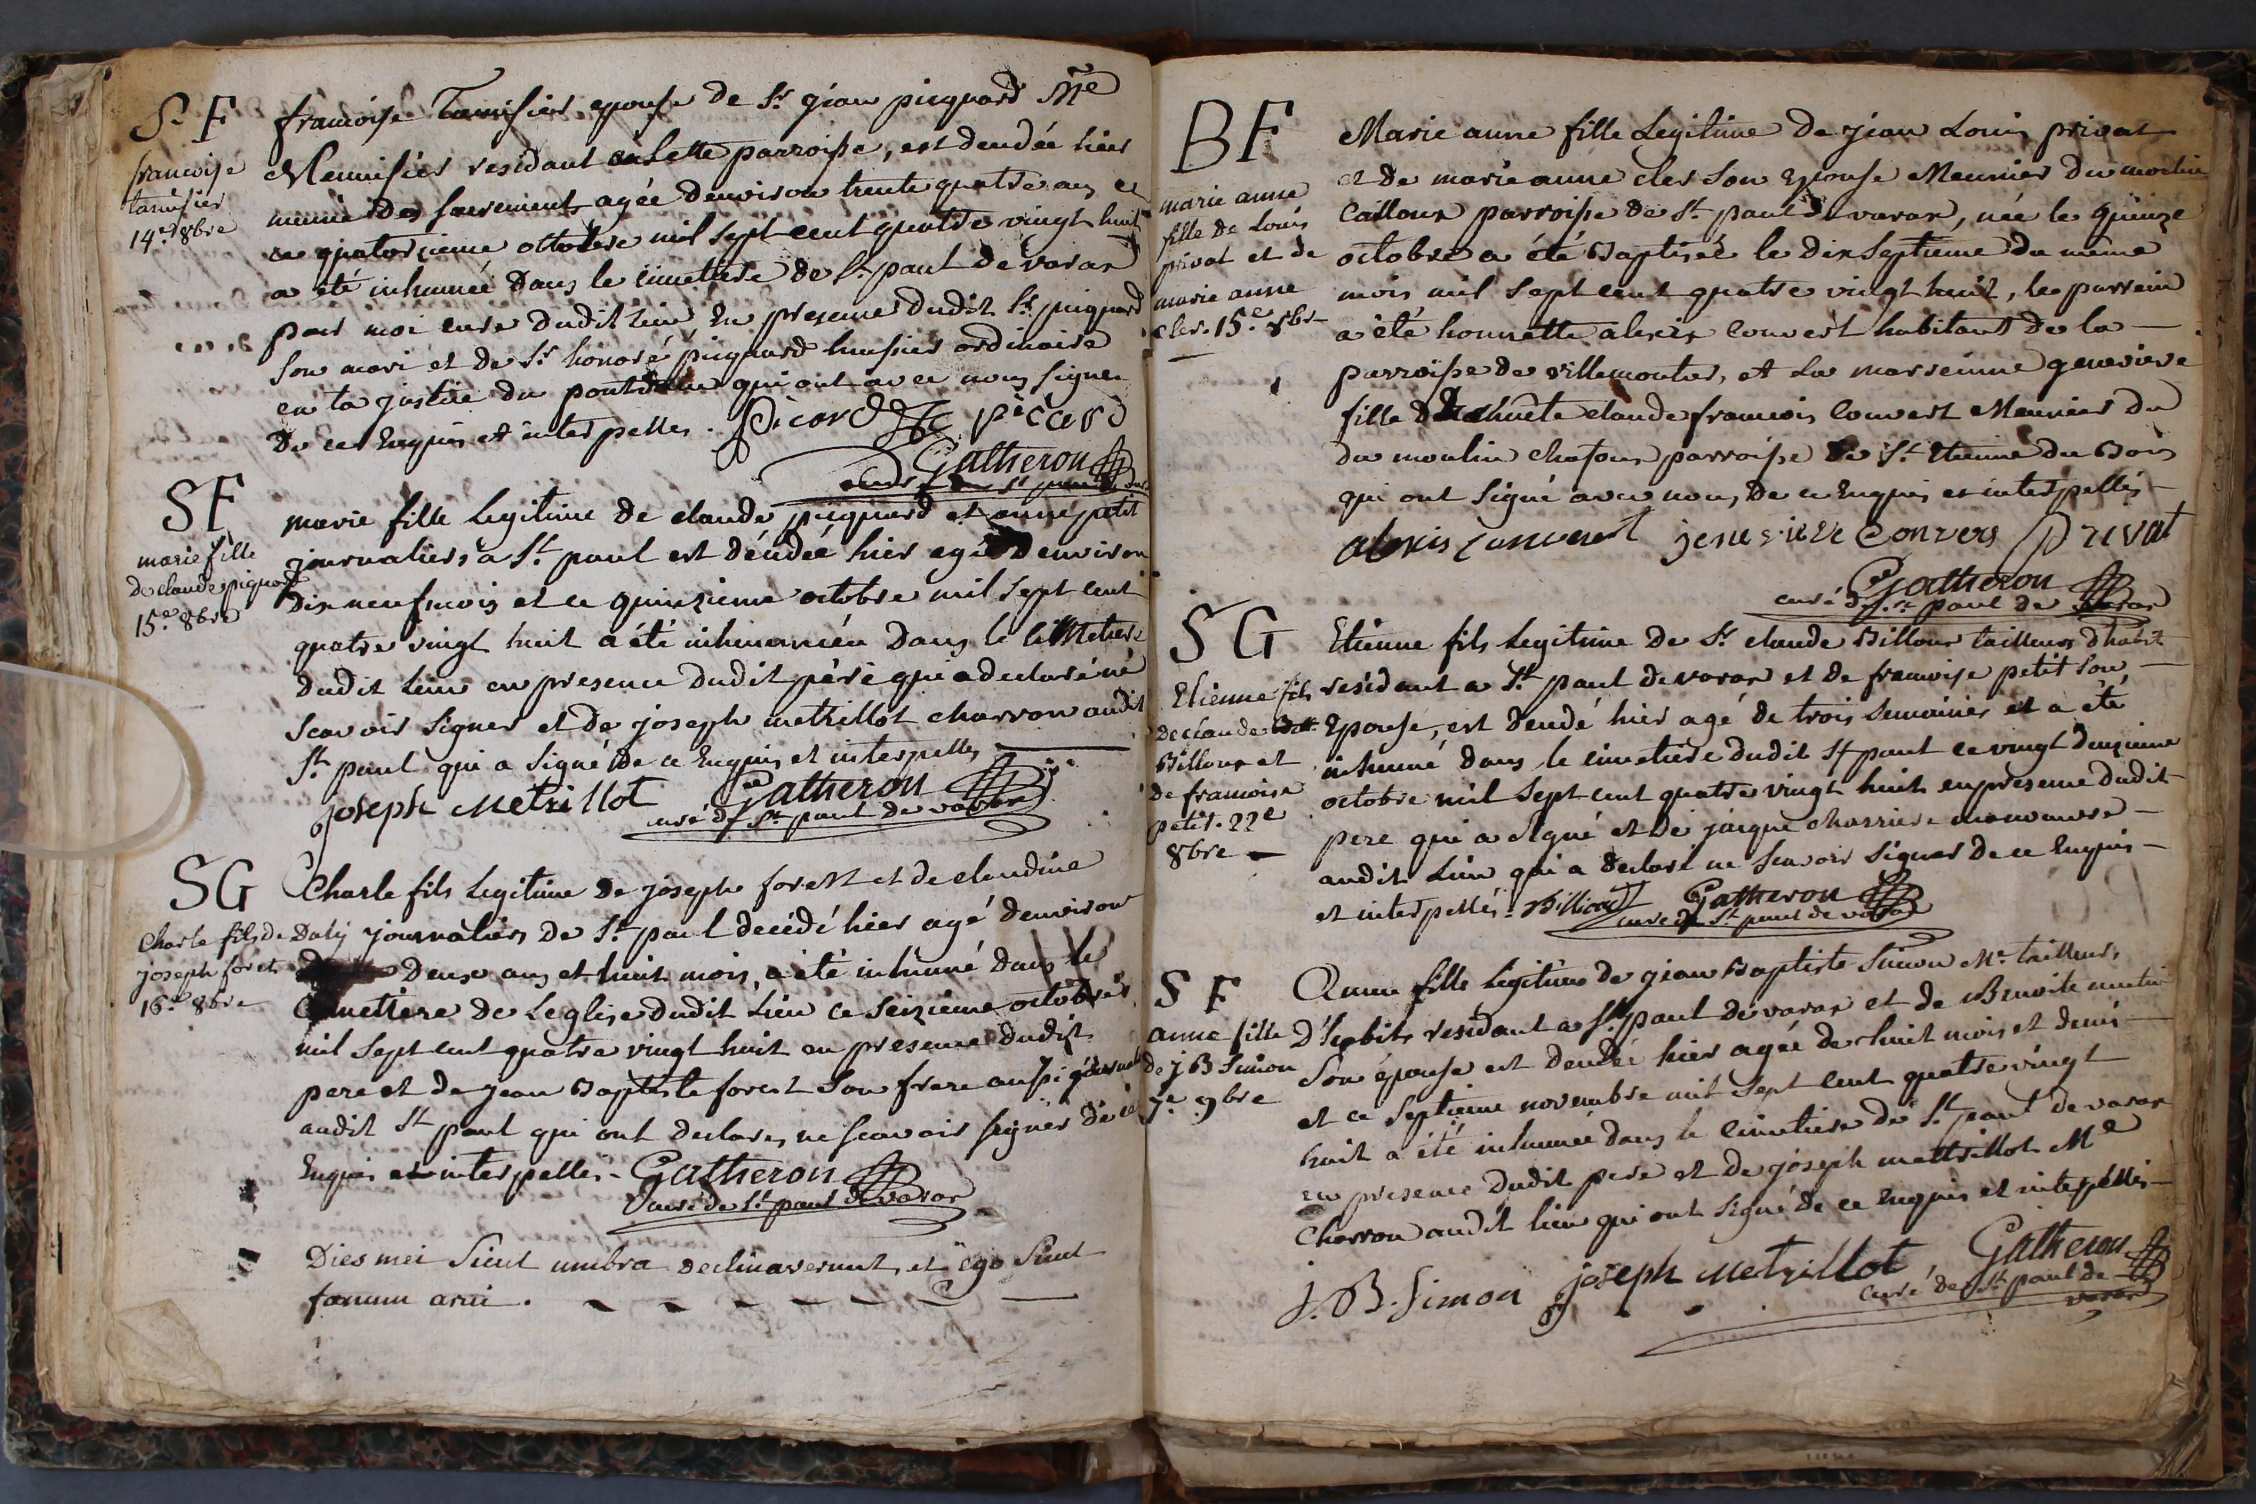 S. F
francoise
tamisier
14.e 8bre
francoise Tamisier epouse de Sr. jean picquard Me
Menuisier residant en Cette parroisse, est decedée hier
munie des sacrements agée denviron trente quatre ans et
ce quatorzieme octobre mil sept cent quatre vingt huit
a été inhumée dans le cimetiere de St. paul de varax
par moi curé dudit lieu, En presence dudit Sr. picquard
son mari et de Sr. honoré picquard huissier ordinaire
en la justice du qui ont avec nous signer
de ce Enquis et interpelles. Picard picard
Gatheron
curé de St paul
SF
marie fille
de claude piquard
15.e 8bre
marie fille legitime de claude picquard et anne petit
journaliers a St. paul est décédée hier agée denviron
dix neuf mois et ce quinzieme octobre mil sept cent
quatre vingt huit a été inhumée dans le cimetiere
dudit lieu en presence dudit père qui a declaré ne
scavoir signer et de joseph metrillot charron audit
St. paul qui a signé de ce Enquis et interpelles
joseph Metrillot Gatheron
curé de St. paul de varax
SG
Charle fils de
joseph forêt
16.e 8bre
Charle fils legitime de joseph forest et de claudine
Daly journaliers de St. paul decédé hier agé denviron
deux ans et huit mois, a été inhumé dans le
Cimettiere de Leglise dudit Lieu ce seizieme octobre
mil sept cent quatre vingt huit en presence dudit
pere et de jean Baptiste forest son frere aussi
audit St. paul qui ont declares ne scavoir signer de ce
Enquis et interpellés - Gatheron
Curé de St. paul de varax
Dies mei Sicut umbra declinaverunt, et ego Sicut
fœnum arui.
BF
marie anne
fille de Louis
privat et de
marie anne
cler. 15.e 8bre
Marie anne fille Legitime de jean Louis privat
et de marie anne cler son Epouse Meunier du moulin
Cailloux parroisse de St. paul de varax, née le quinze
octobre a été Baptisée le dix septieme du même
mois mil sept cent quatre vingt huit, le parrein
a été honnette alexis Convert habitant de la
parroisse de villemoutier, et La marreinne genevieve
fille claude francois Convert Meunier du
du moulin parroisse de St. Etienne du Bois
qui ont signé avec nous, de ce Enquis et interpellés
alexis Convert jenevieve Convers Privat
Gatheron
curé de St. paul de varax
SG
Etienne fils
de claude
Billoux et
de francoise
petit. 22e
8bre
Etienne fils legitime de Sr. claude Billoux tailleur dhabit
residant a St. paul de varax et de francoise petit son
Epouse, est decedé hier agé de trois semaines et a été
inhumé dans le cimetiere dudit St paul ce vingt deuxieme
octobre mil sept cent quatre vingt huit en presence dudit
pere qui a signé et de jacque charriere manoeuvre
audit Lieu qui a declaré ne scavoir signer de ce Enquis
et interpellés - Billioux Gatheron
curé de St. paul de varax
S F
anne fille
de j B Simon
7.e 9bre
Anne fille legitime de jean Baptiste Simon Me. tailleur
D'habits residant a St. paul de varax et de Benoite
Son épouse est decedée hier agée de huit mois et demi
et ce septieme novembre mil sept cent quatre vingt
huit a été inhumée dans le cimetiere de St. paul de varax
en presence dudit pere et de joseph mettrillot Me
Charron audit lieu qui ont signé de ce enquis et interpellés
j. B. Simon joseph Metrillot Gatheron
curé de St. paul de
varax